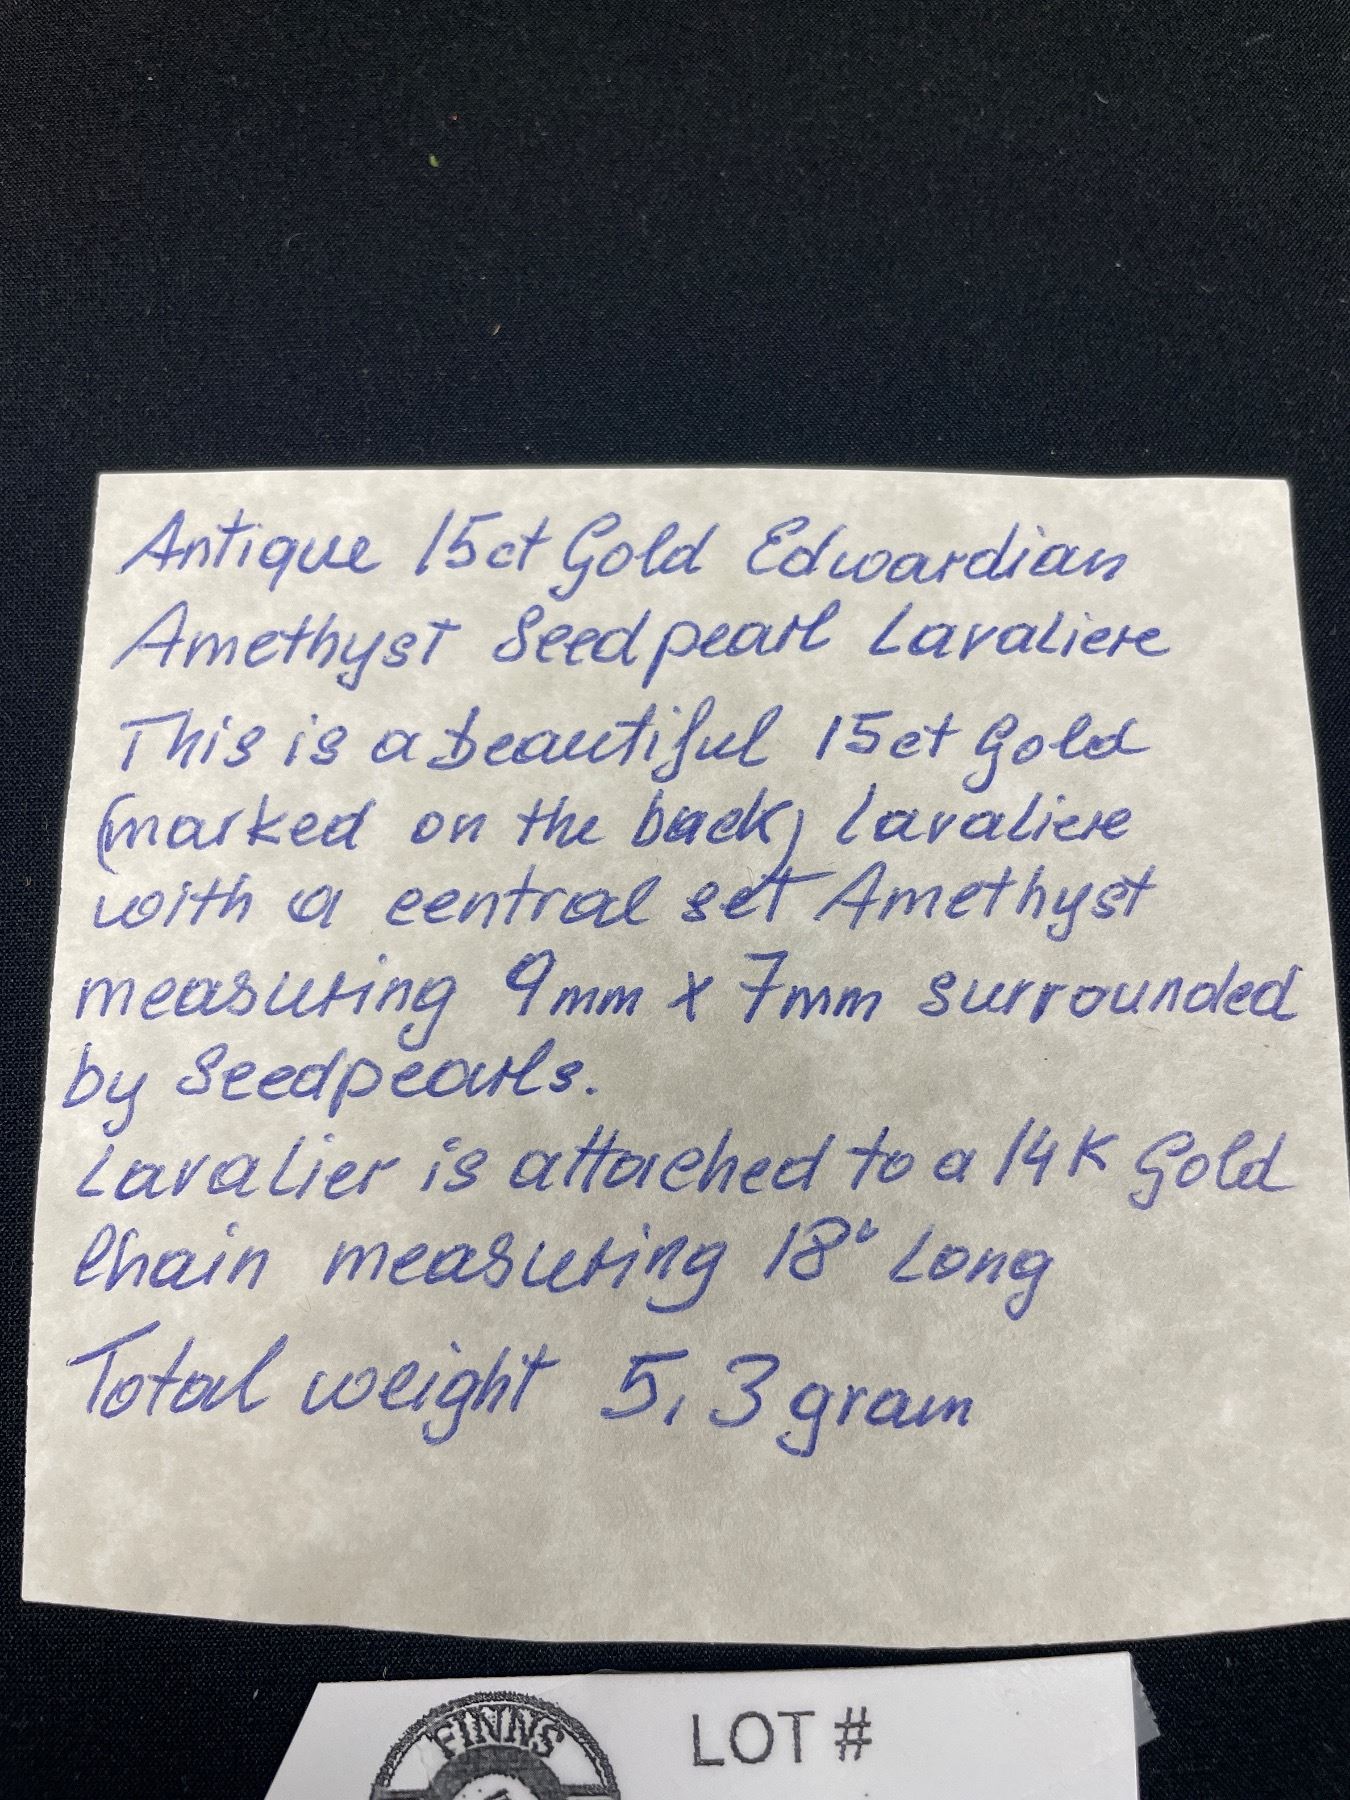 Antique 15ct Gold Edwardian
Amethyst Seedpearl Lavaliere
This is a beautiful 15ct Gold
(marked on the back) Lavaliere
with a central set Amethyst
measuring 9mm x 7mm surrounded
by Seedpearls.
Lavalier is attached to a 14K Gold
Chain measuring 18" Long
Total weight 5,3 gram
FINNS
LOT #